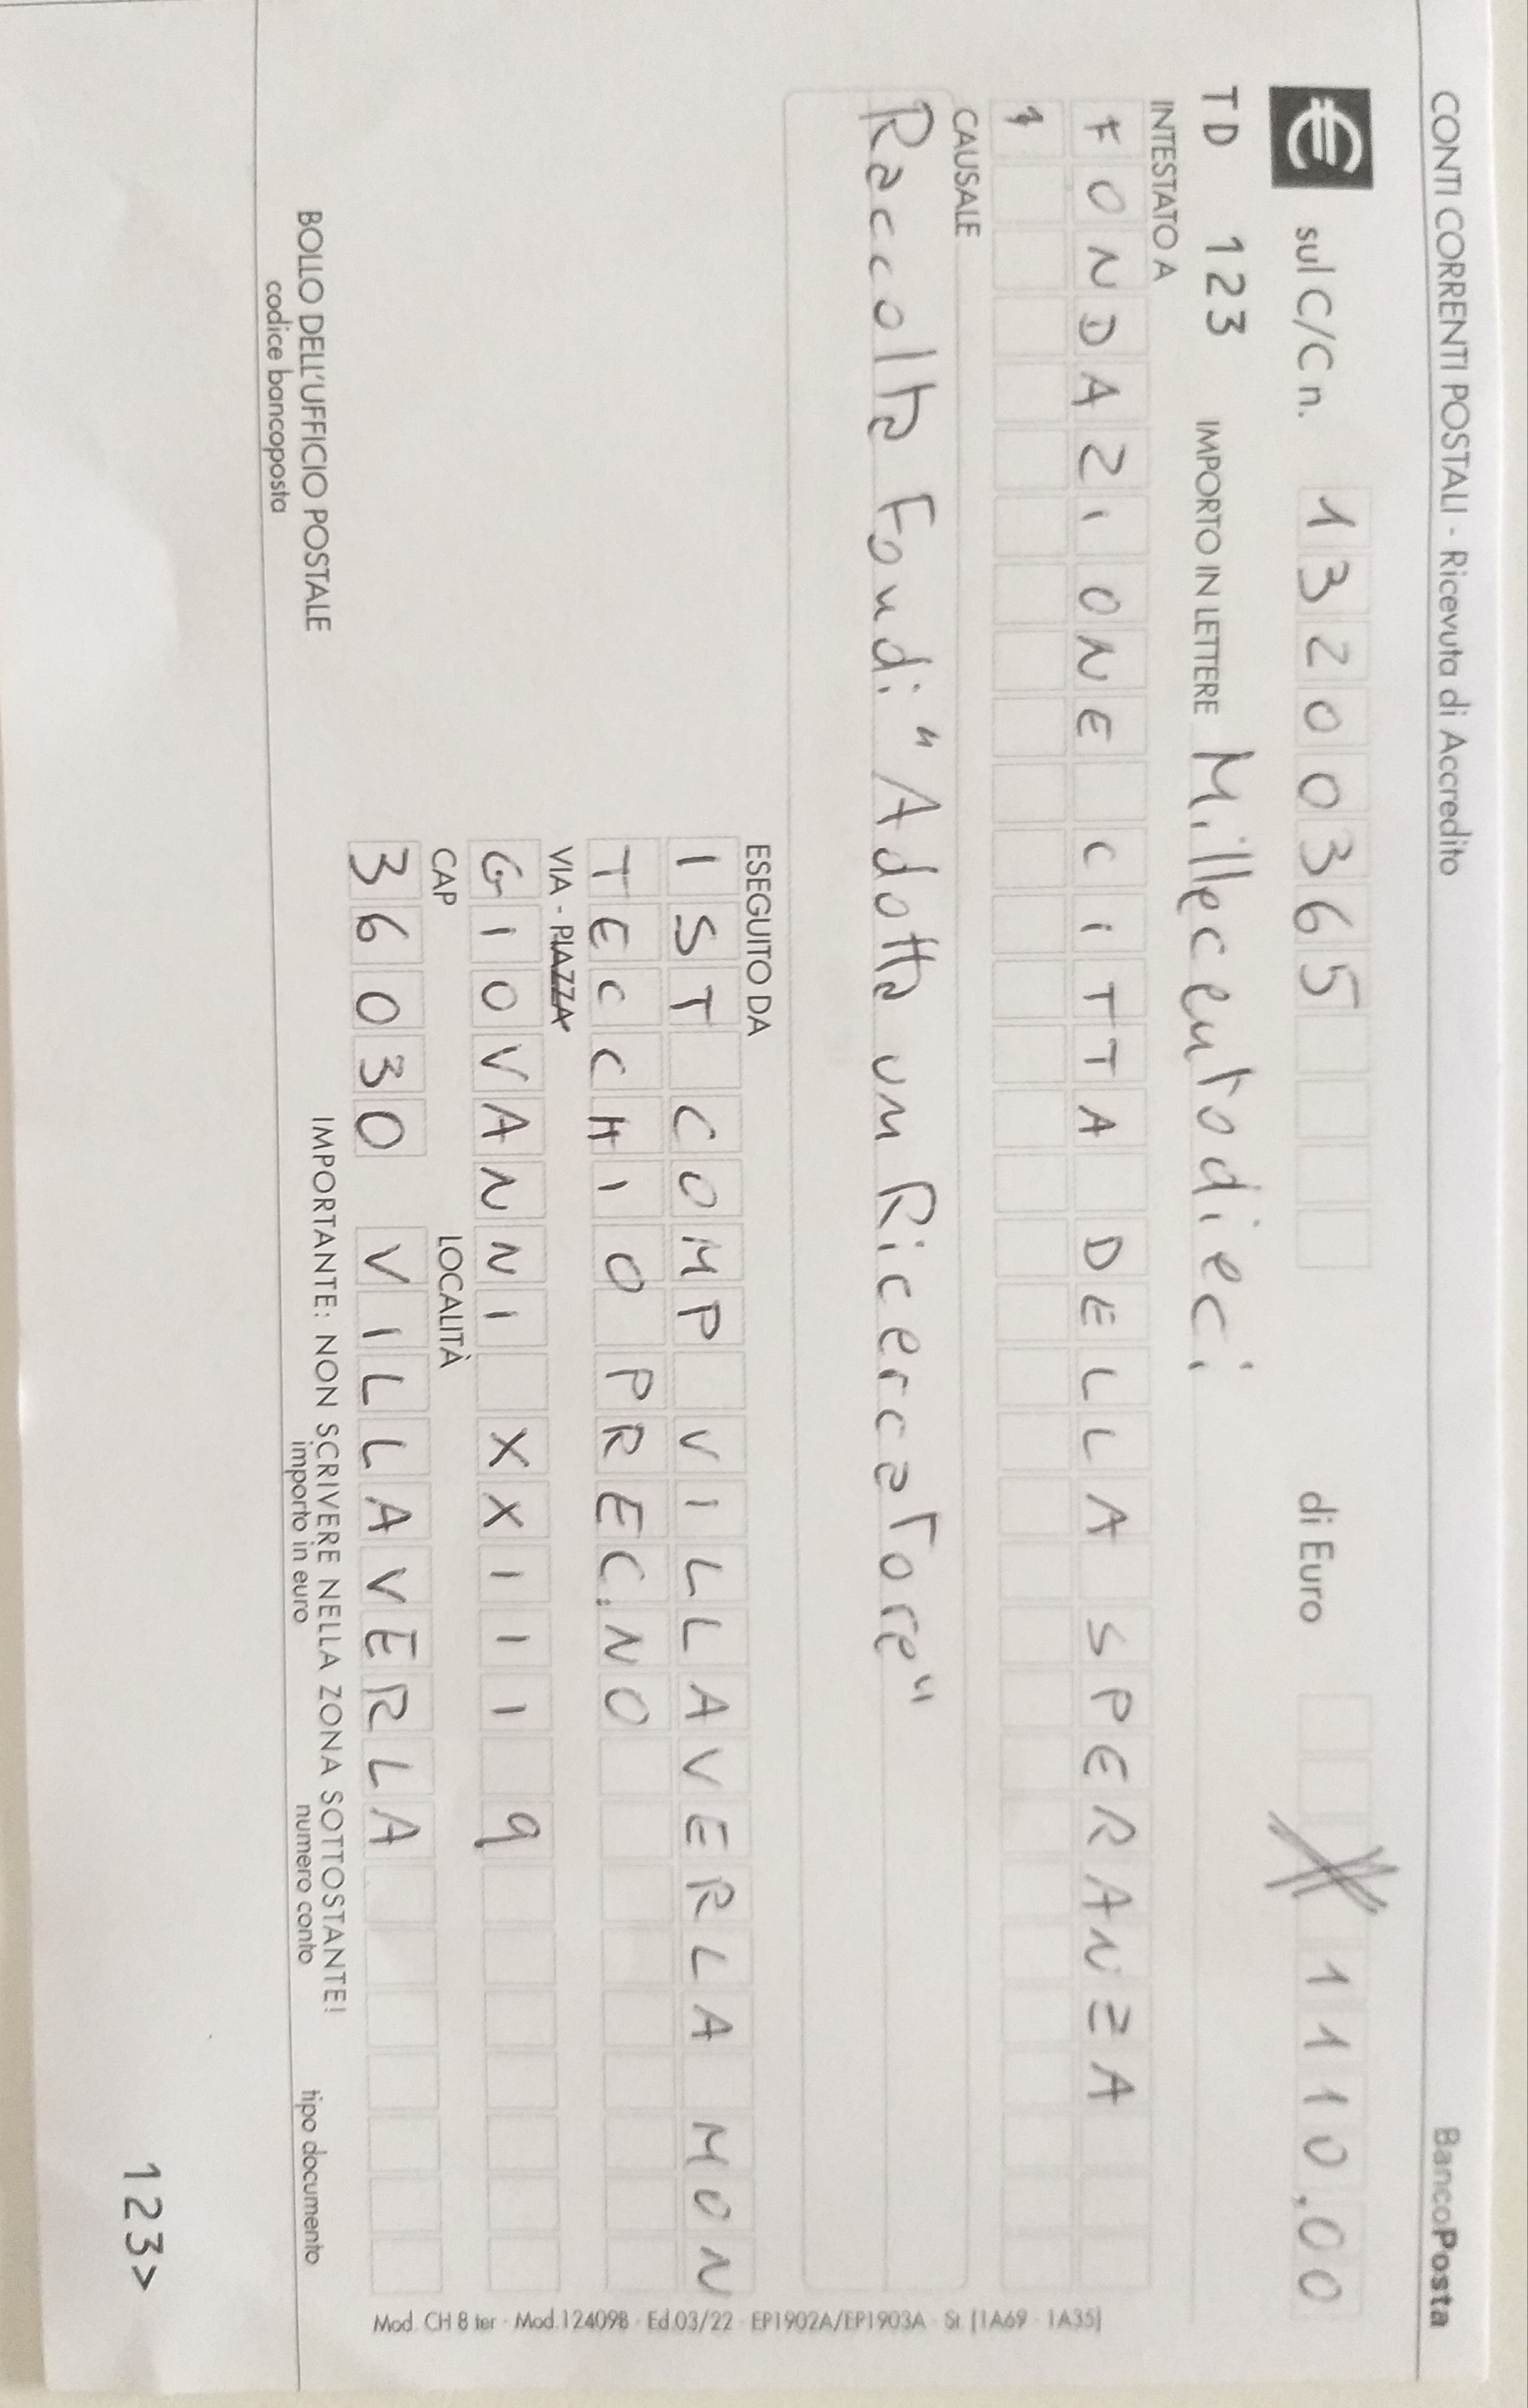 CONTI CORRENTI POSTALI - Ricevuta di Accredito BancoPosta
€ sul C/C n. 13200365 di Euro 1110,00
TD 123 IMPORTO IN LETTERE Millecentodieci
INTESTATO A
FONDAZIONE CITTA DELLA SPERANZA
CAUSALE
Raccolta Fondi "Adotta un Ricercatore"
ESEGUITO DA
IST COMP VILLAVERLA MON
TECCHIO PREC.NO
VIA - PIAZZA
GIOVANNI XXIII 9
CAP LOCALITÀ
36030 VILLAVERLA
BOLLO DELL'UFFICIO POSTALE
codice bancoposta
IMPORTANTE: NON SCRIVERE NELLA ZONA SOTTOSTANTE!
importo in euro numero conto tipo documento
123>
Mod. CH 8 ter - Mod.12409B - Ed.03/22 - EP1902A/EP1903A - St [1A69 - 1A35]